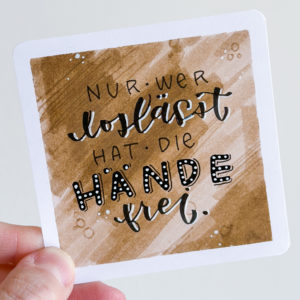 NUR·WER
loslässt
HAT·DIE
HÄNDE
frei.